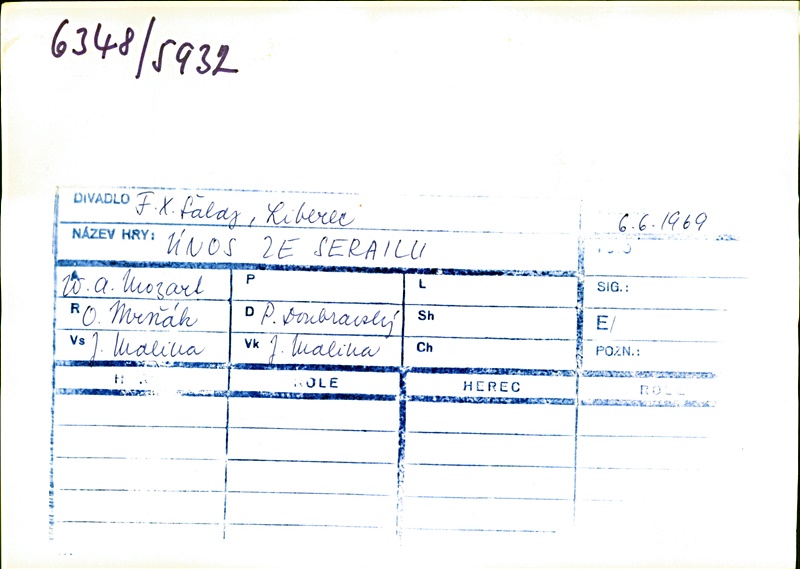 6348/5932
DIVADLO F. X. Šaldy, Liberec
6.6.1969
NÁZEV HRY: ÚNOS ZE SERAILU
A W. A. Mozart P L SIG.:
R O. Mrňák D P. Doubravský Sh E/
Vs J. Malina Vk J. Malina Ch POZN.:
ROLE HEREC ROLE